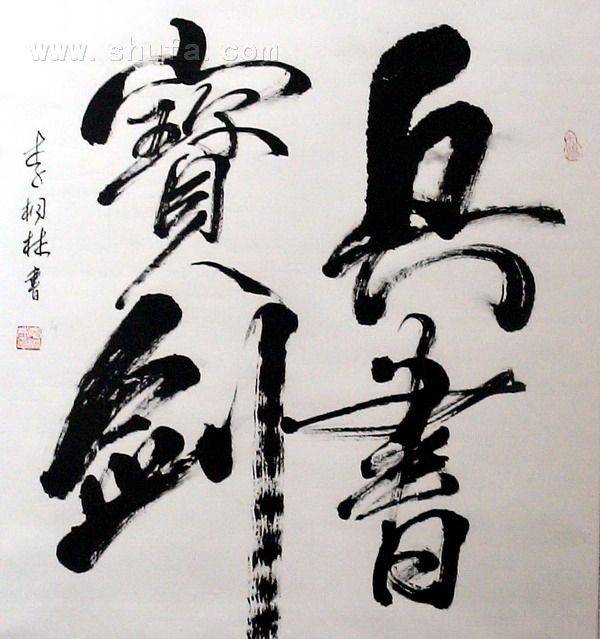 兵書
寶劍
李桐林書
www.shufa.com